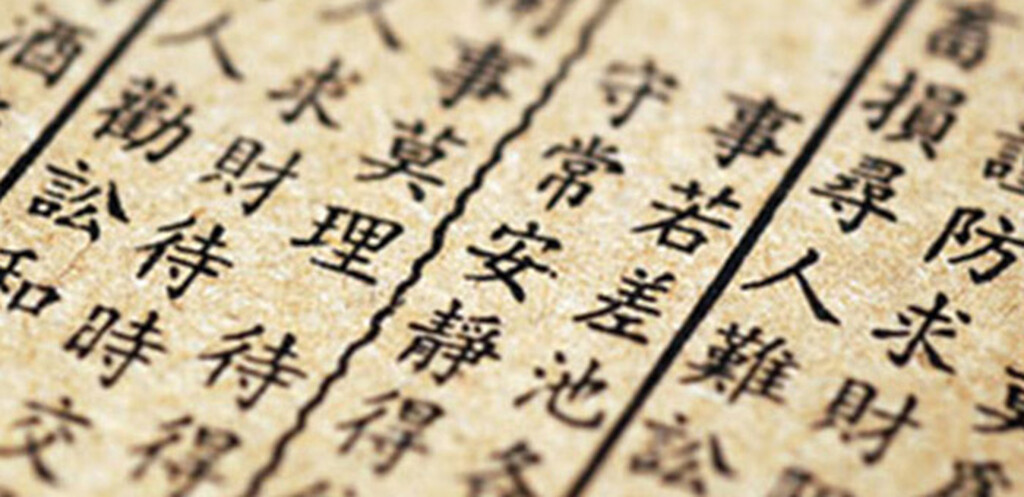 防求財
畜損尋人難訟
事若差池各
守常安靜得
事莫理待得
人求財待時交
人勸訟和
酒